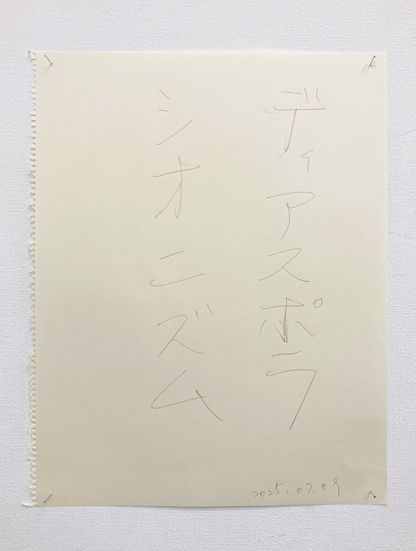 ディアスポラ
シオニズム
2025.07.09